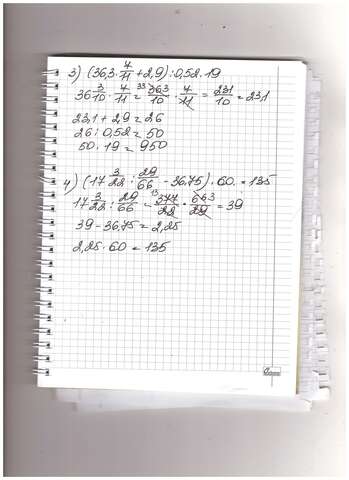 3) (36,3 · 7/11 + 2,9) : 0,52 · 19
36 3/10 · 7/11 = 363/10 · 7/11 = 231/10 = 23,1
23,1 + 2,9 = 26
26 : 0,52 = 50
50 · 19 = 950
4) (17 3/22 : 29/66 - 36,75) · 60 = 135
17 3/22 : 29/66 = 377/22 · 66/29 = 39
39 - 36,75 = 2,25
2,25 · 60 = 135